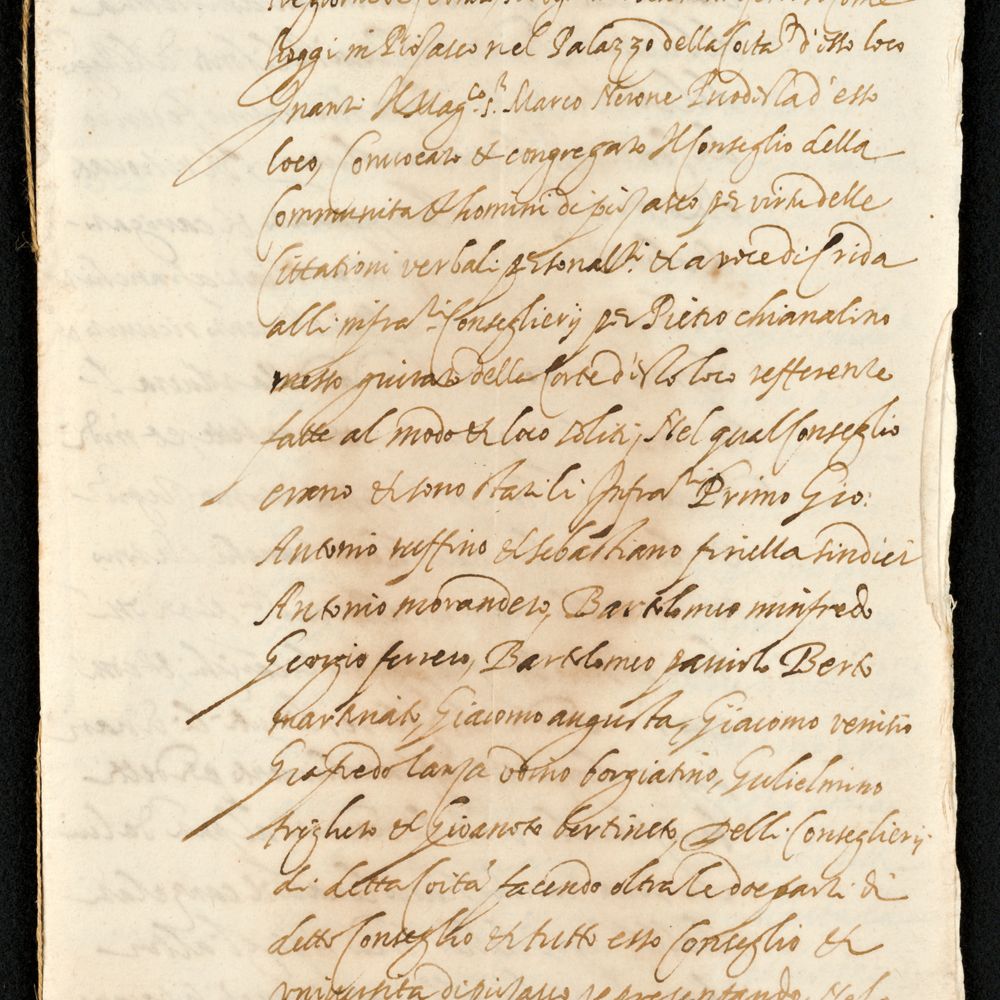 hoggi in Piosasco nel Palazzo della Coita d'esso loco
Inanti Il Mag.co s.r Marco Nerone d'esto
loco, Convocato et congregato Il Conseglio della
Communita et homini di piosasco per virtu delle
Cittationi verbali personal.ti et a voce di Crida
alli infra.ti Conseglierij per Pietro chianalino
messo giurato della Corte d'esso loco refferente
fatte al modo et loco soliti, Nel qual Conseglio
erano et sono stati li Infra.ti Primo Gio:
Antonio ruffino et sebastiano firiella sindici
Antonio morandeto, Bartolomeo minfredo
Georgio ferrero, Bartolomeo paviolo Berto
martinato, Giacomo augusta, Giacomo venitio
Giafredo lanza odino borgiatino, Gulielmino
trigheto et Gioanoto bertineto, Delli Conseglierij
di detta Coita facendo oltra le doe parti di
detto Conseglio et tutto esso Conseglio et
universita di piosasco representando,